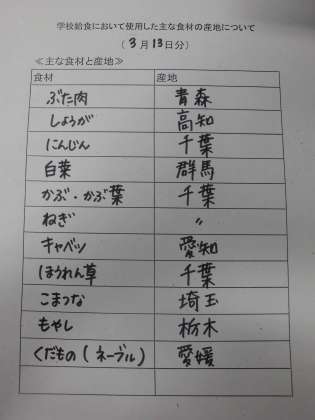 学校給食において使用した主な食材の産地について
(3月13日分)
≪主な食材と産地≫
食材 産地
ぶた肉 青森
しょうが 高知
にんじん 千葉
白菜 群馬
かぶ・かぶ葉 千葉
ねぎ 〃
キャベツ 愛知
ほうれん草 千葉
こまつな 埼玉
もやし 栃木
くだもの(ネーブル) 愛媛